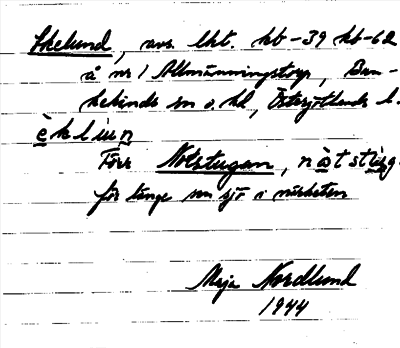 Ekelund, avs. lht. hb-39 kb-62
å nr 1 Allmänningstorp, Ban-
kekinds sn o. hd, Östergötlands l.
èklun
Förr Notstugan, nòtstùg
för länge sen sjö i närheten
Maja Nordlund
1944